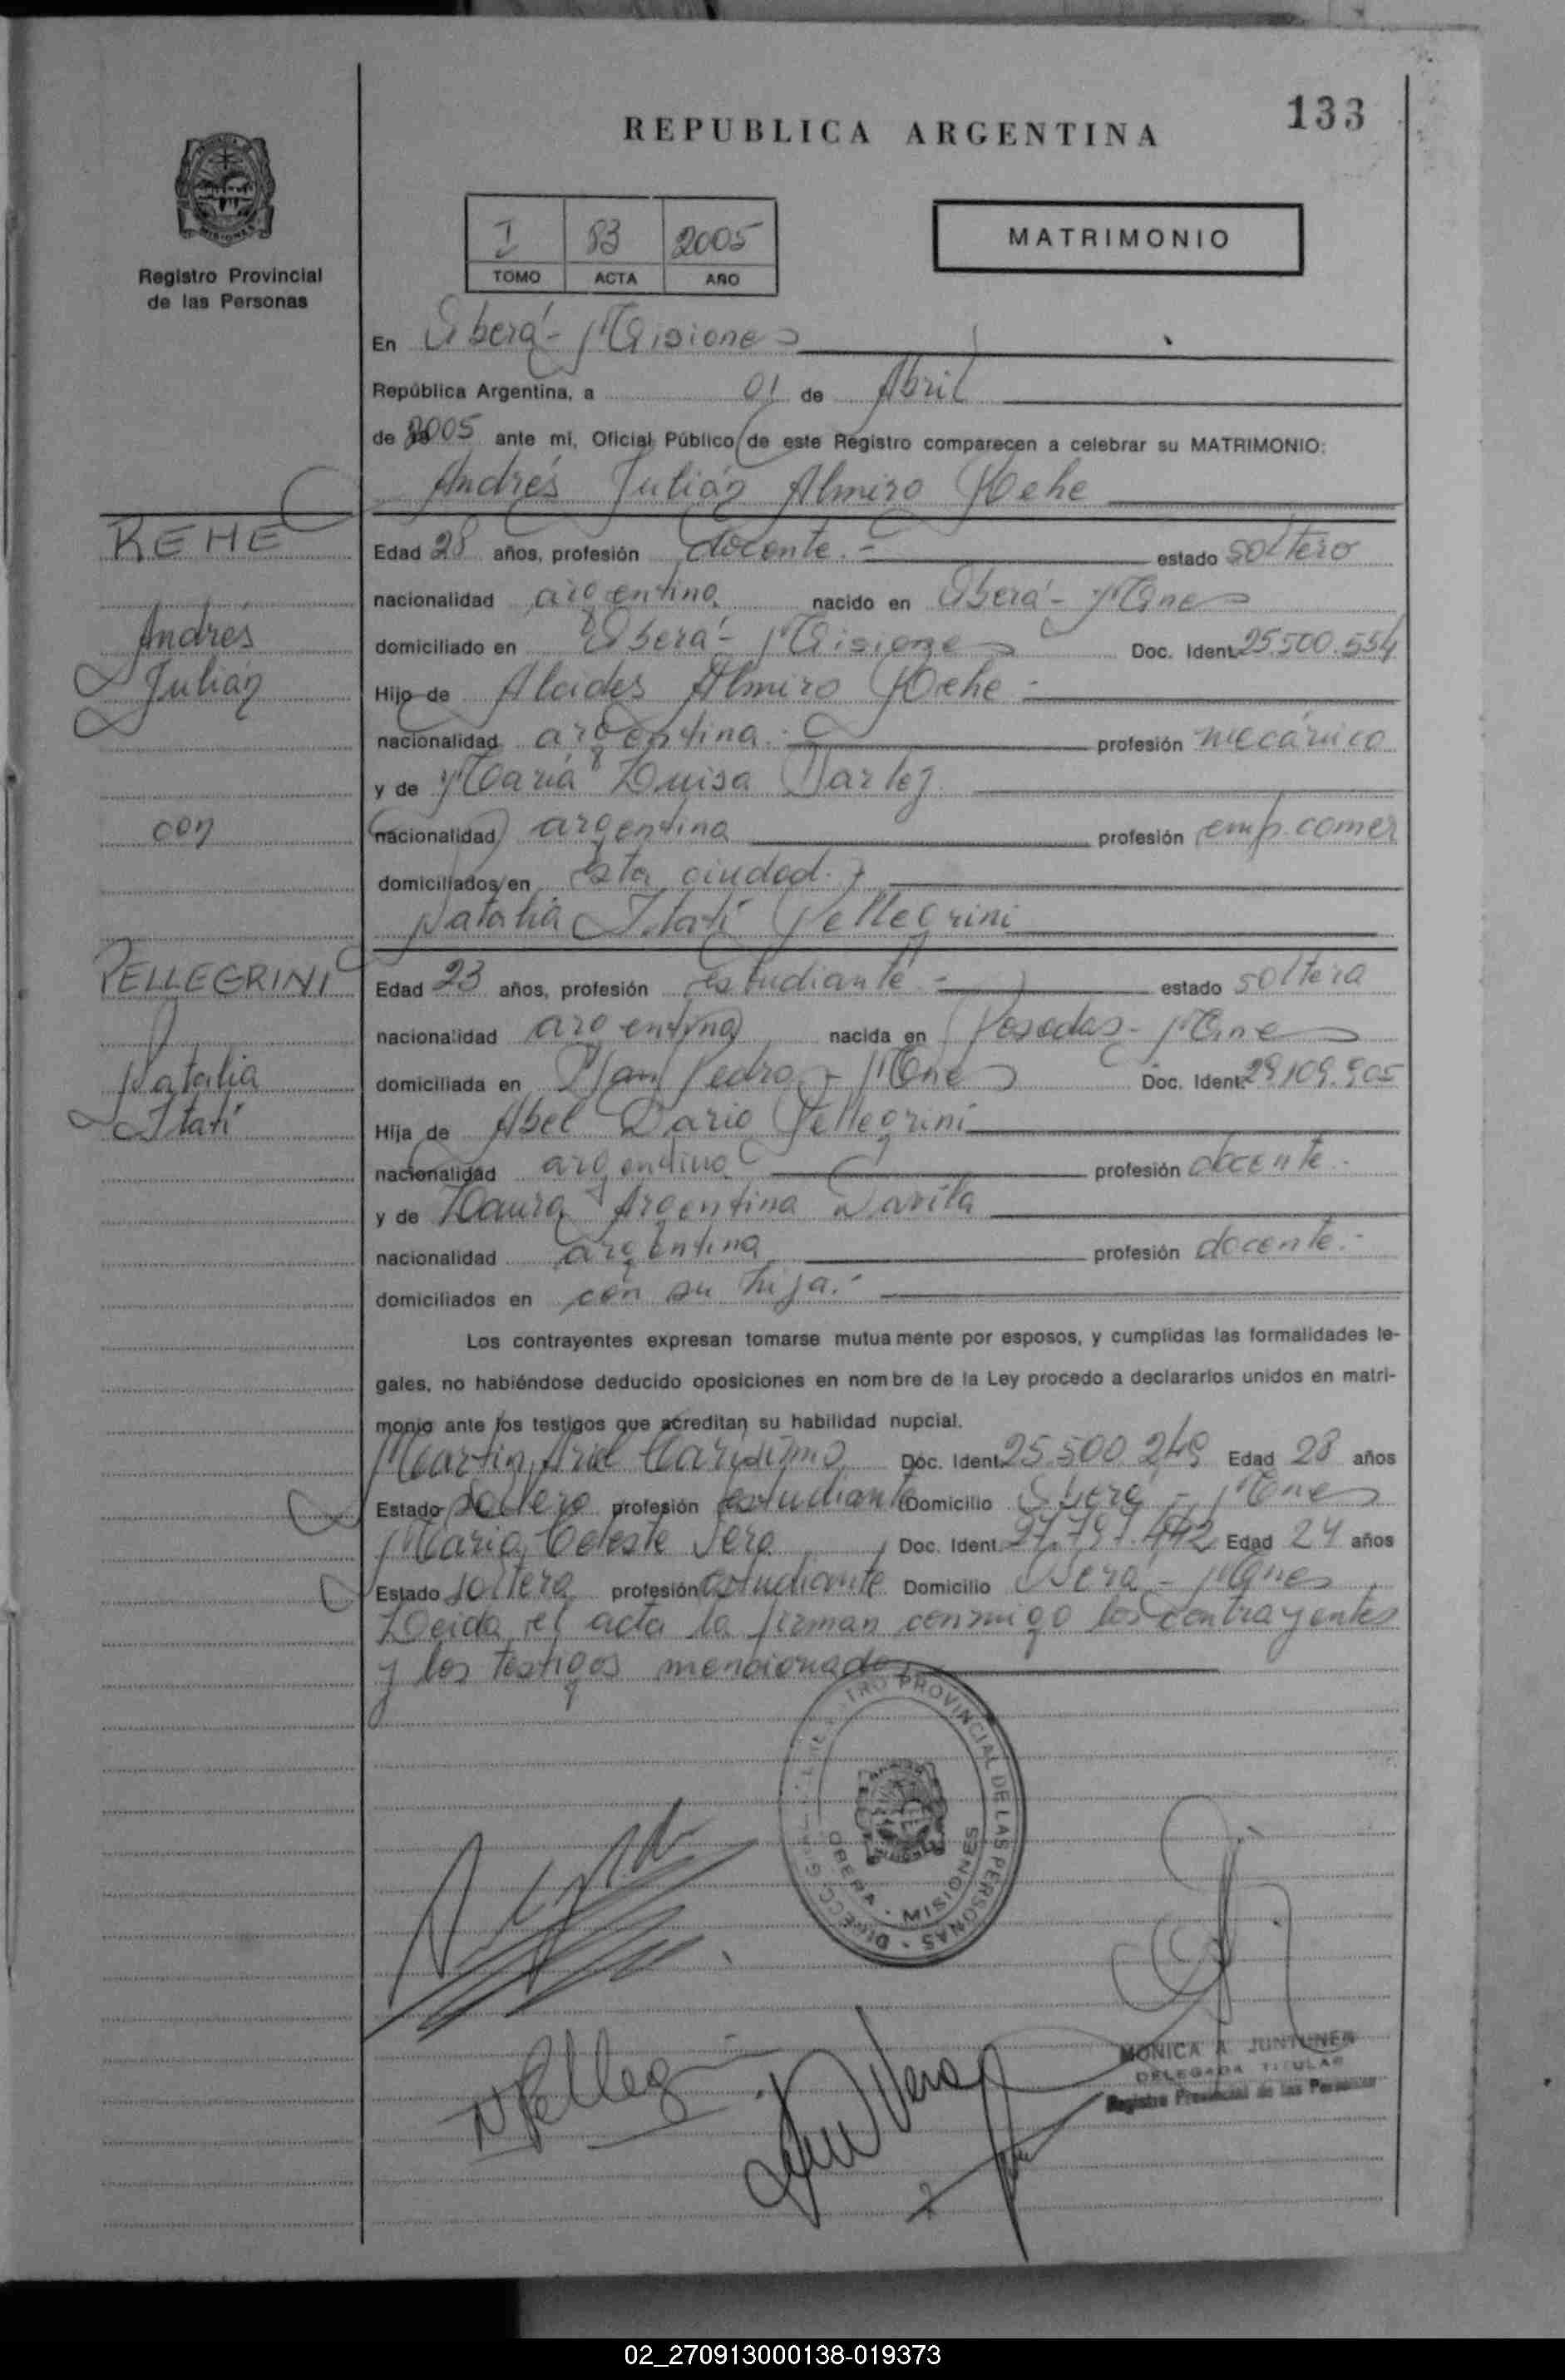 133
REPUBLICA ARGENTINA
MISIONES
Registro Provincial
de las Personas
I 83 2005
TOMO ACTA AÑO
MATRIMONIO
En Oberá - Misiones
República Argentina, a 01 de Abril
de 2005 ante mí, Oficial Público de este Registro comparecen a celebrar su MATRIMONIO:
Andrés Julián Almiro Rehe
REHE
Edad 28 años, profesión docente.- estado soltero
nacionalidad argentina nacido en Oberá - Mnes
Andrés
domiciliado en Oberá - Misiones Doc. Ident. 25.500.554
Julián
Hijo de Alcides Almiro Rehe -
nacionalidad argentina.- profesión mecánico
y de María Luisa
con
nacionalidad argentina profesión emp. comer
domiciliados en esta ciudad.-
Natalia Itatí Pellegrini
PELLEGRINI
Edad 23 años, profesión estudiante - estado soltera
nacionalidad argentina nacida en Posadas - Mnes
Natalia
domiciliada en San Pedro - Mnes Doc. Ident. 29.109.905
Itatí
Hija de Abel Dario Pellegrini
nacionalidad argentina profesión docente.-
y de Laura Argentina Davila
nacionalidad argentina profesión docente.-
domiciliados en con su hija.-
Los contrayentes expresan tomarse mutuamente por esposos, y cumplidas las formalidades le-
gales, no habiéndose deducido oposiciones en nombre de la Ley procedo a declararlos unidos en matri-
monio ante los testigos que acreditan su habilidad nupcial.
Martin Ariel Doc. Ident. 25.500.249 Edad 28 años
Estado soltero profesión estudiante Domicilio Oberá - Mnes
Maria Celeste Vera Doc. Ident. 27.797.442 Edad 24 años
Estado soltera profesión estudiante Domicilio Oberá - Mnes
Leida el acta la firman conmigo los contrayentes
y los testigos mencionados
REGISTRO PROVINCIAL DE LAS PERSONAS
OBERA - MISIONES
N Pelleg
Vera
MONICA A. JUNTUNEN
DELEGADA TITULAR
Registro Provincial de las Personas
02_270913000138-019373